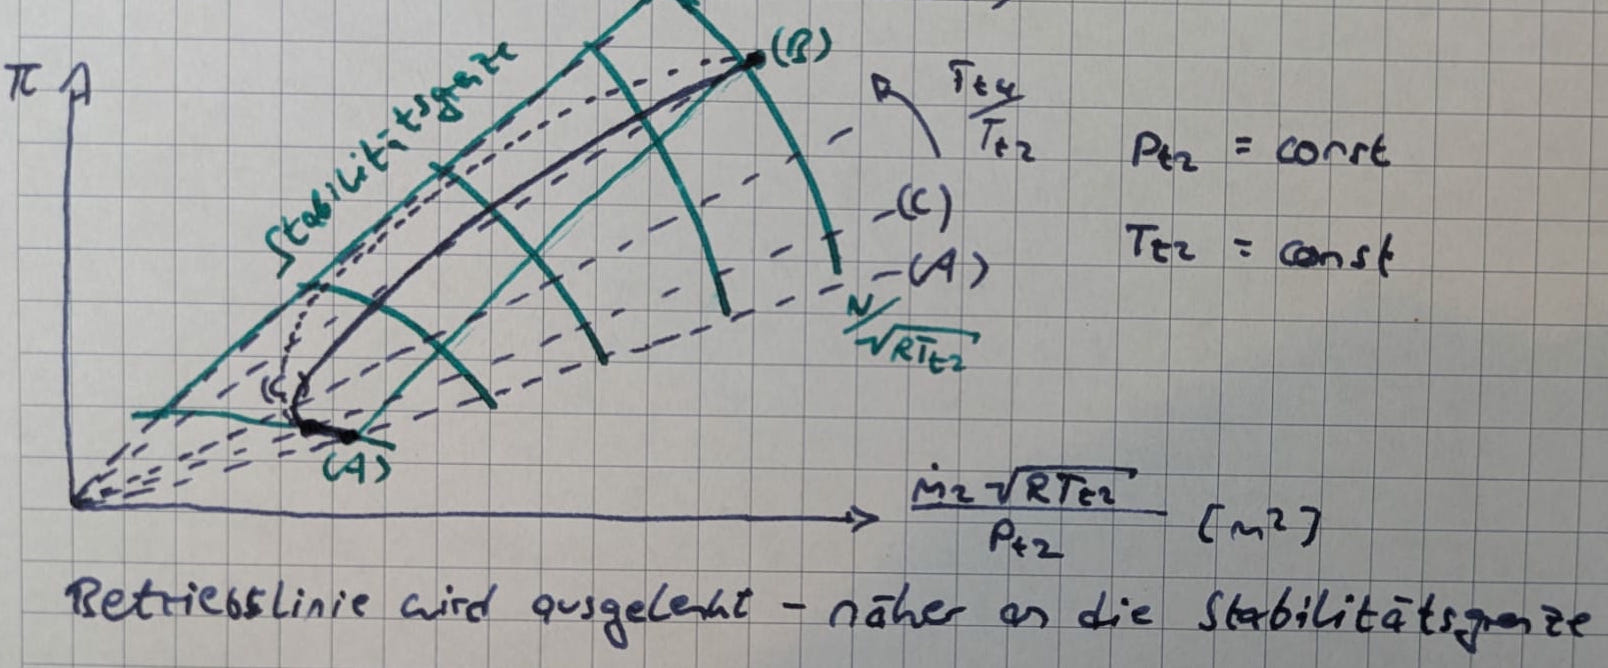 π
Stabilitätsgrenze
(B)
T_t4 / T_t2
P_t2 = const
(C)
T_t2 = const
(A)
N / √RT_t2
(C)
(A)
ṁ_2 √RT_t2 / P_t2 [m²]
Betriebslinie wird ausgelenkt - näher an die Stabilitätsgrenze